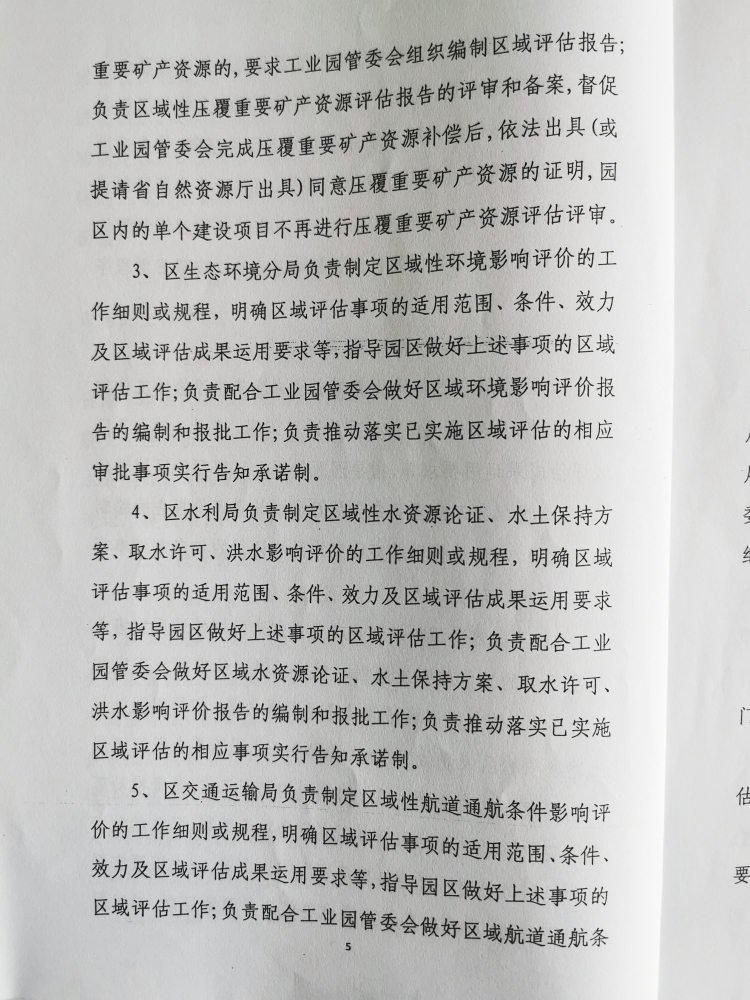 重要矿产资源的,要求工业园管委会组织编制区域评估报告;
负责区域性压覆重要矿产资源评估报告的评审和备案,督促
工业园管委会完成压覆重要矿产资源补偿后,依法出具(或
提请省自然资源厅出具)同意压覆重要矿产资源的证明,园
区内的单个建设项目不再进行压覆重要矿产资源评估评审。
3、区生态环境分局负责制定区域性环境影响评价的工
作细则或规程，明确区域评估事项的适用范围、条件、效力
及区域评估成果运用要求等,指导园区做好上述事项的区域
评估工作;负责配合工业园管委会做好区域环境影响评价报
告的编制和报批工作;负责推动落实已实施区域评估的相应
审批事项实行告知承诺制。
4、区水利局负责制定区域性水资源论证、水土保持方
案、取水许可、洪水影响评价的工作细则或规程，明确区域
评估事项的适用范围、条件、效力及区域评估成果运用要求
等，指导园区做好上述事项的区域评估工作；负责配合工业
园管委会做好区域水资源论证、水土保持方案、取水许可、
洪水影响评价报告的编制和报批工作;负责推动落实已实施
区域评估的相应事项实行告知承诺制。
5、区交通运输局负责制定区域性航道通航条件影响评
价的工作细则或规程,明确区域评估事项的适用范围、条件、
效力及区域评估成果运用要求等,指导园区做好上述事项的
区域评估工作;负责配合工业园管委会做好区域航道通航条
5
门
估
要